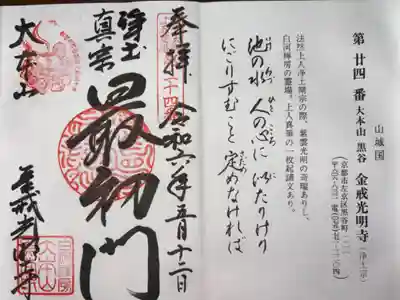 山城国
第廿四番 大本山 黒谷 金戒光明寺 (浄土宗)
京都市左京区黒谷町一二一
法然上人浄土開宗の際、紫雲光明の奇瑞ありし、
白河禅房の霊場。上人真筆の一枚起請文あり。
池の水 人の心に 似たりけり
にごりすむこと 定めなければ
奉拝 令和六年五月十二日
浄土真宗
最初門
大本山
金戒光明寺